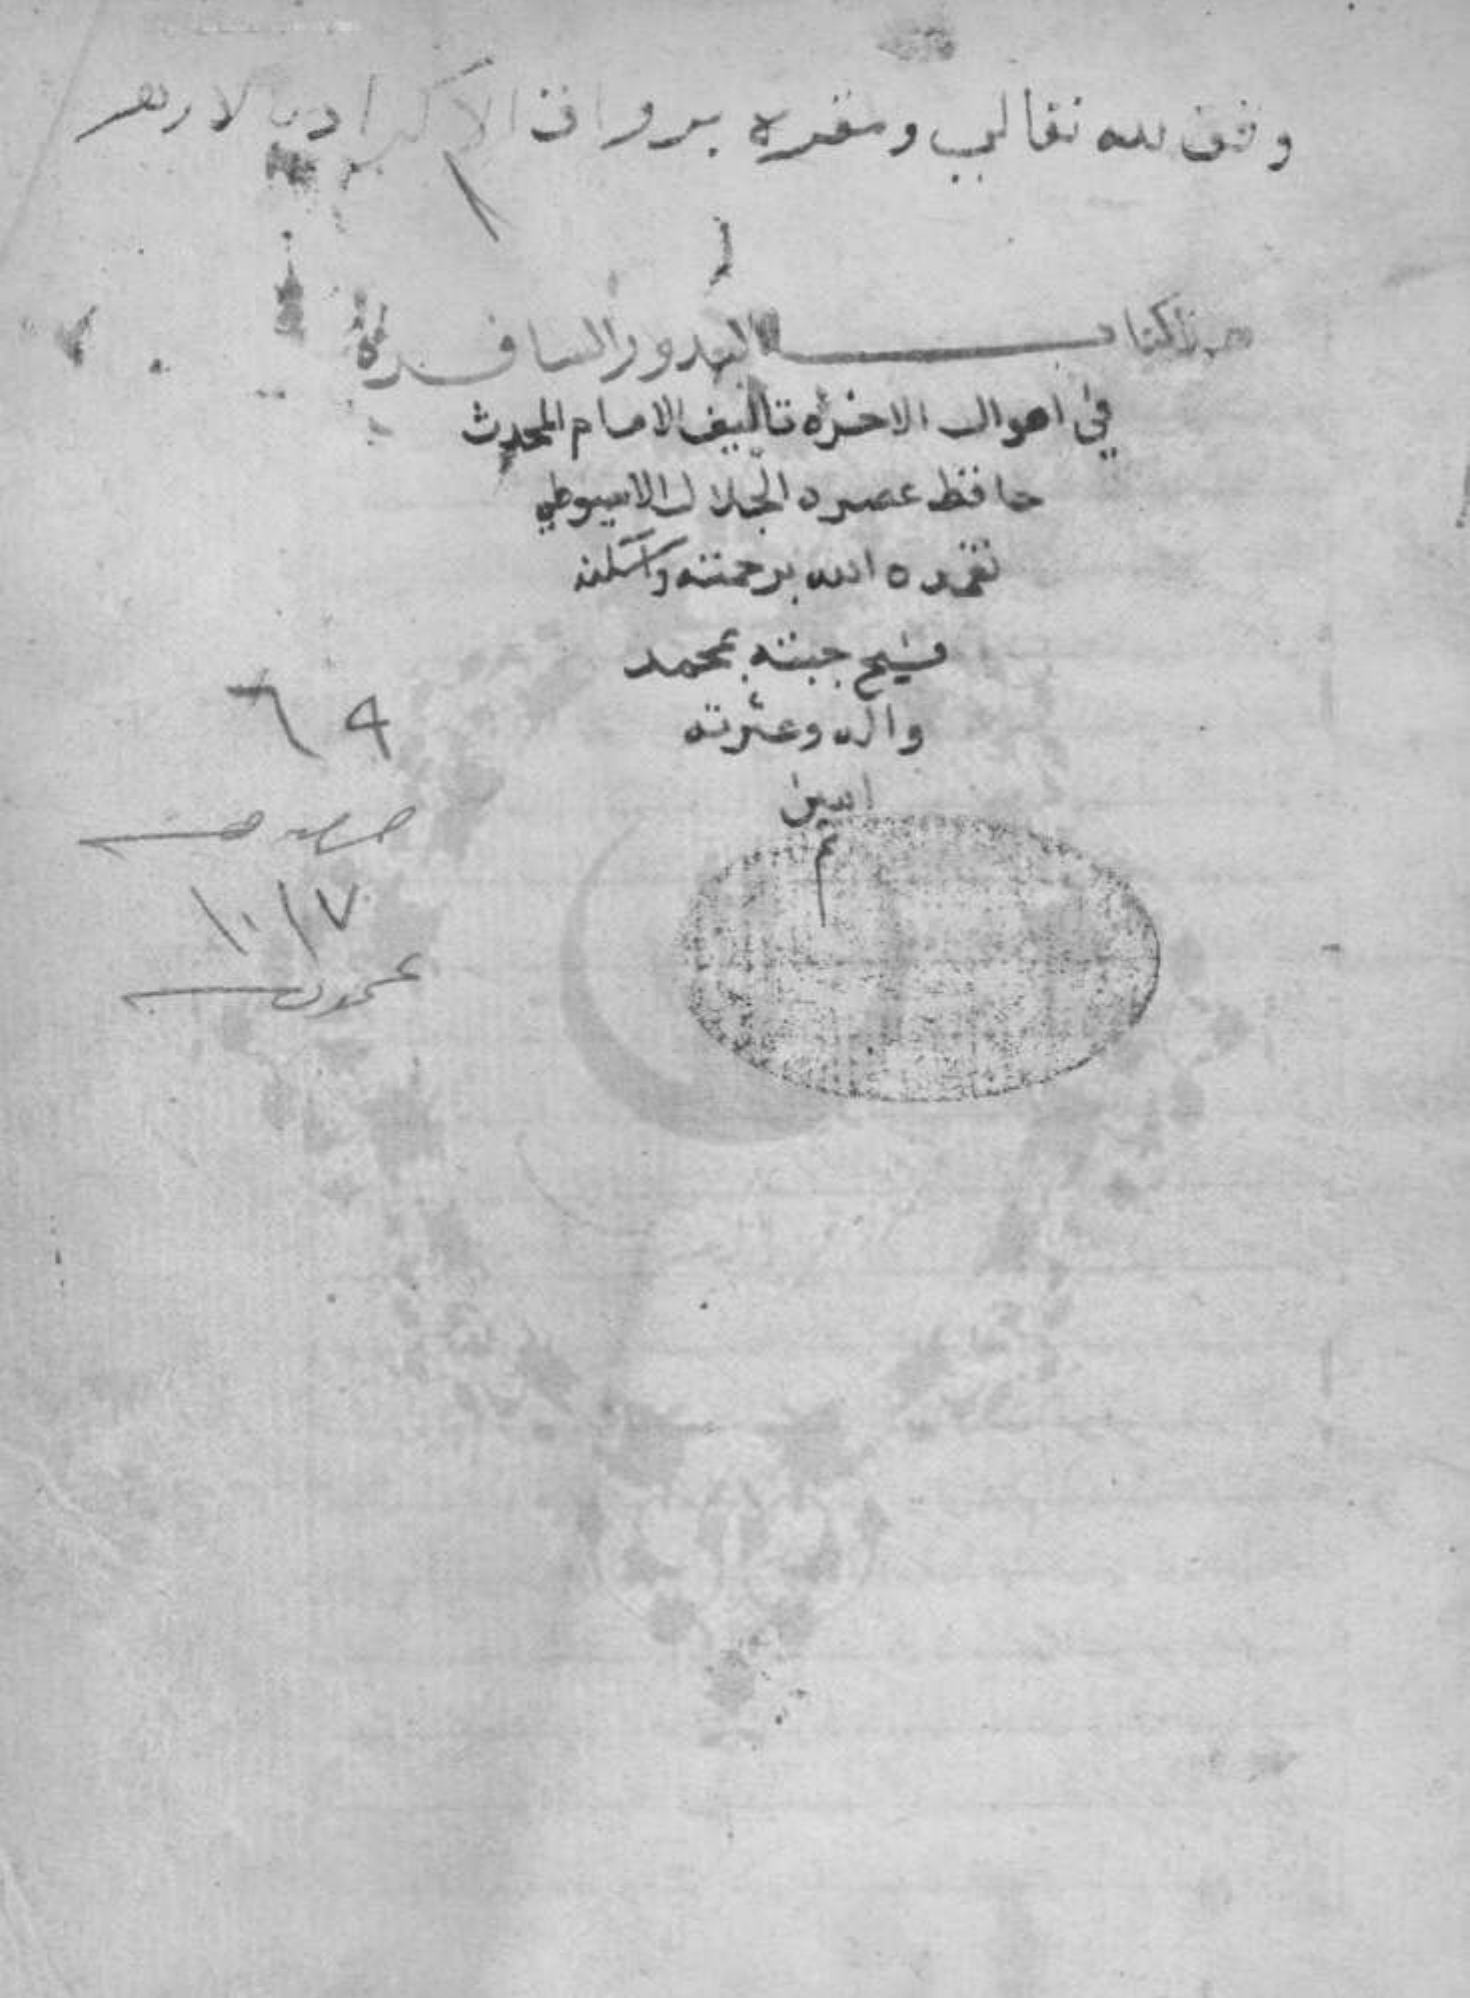 وقف لله تعالى ومقره برواق الاكراد بالازهر
هذا كتاب البدور السافرة
في احوال الاخرة تاليف الامام المحدث
حافظ عصره الجلال الاسيوطي
تغمده الله برحمته واسكنه
فسيح جنته بمحمد
واله وعترته
امين
م
٦٩
١٠١٧